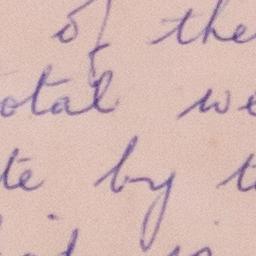 of the
otal we
te by t